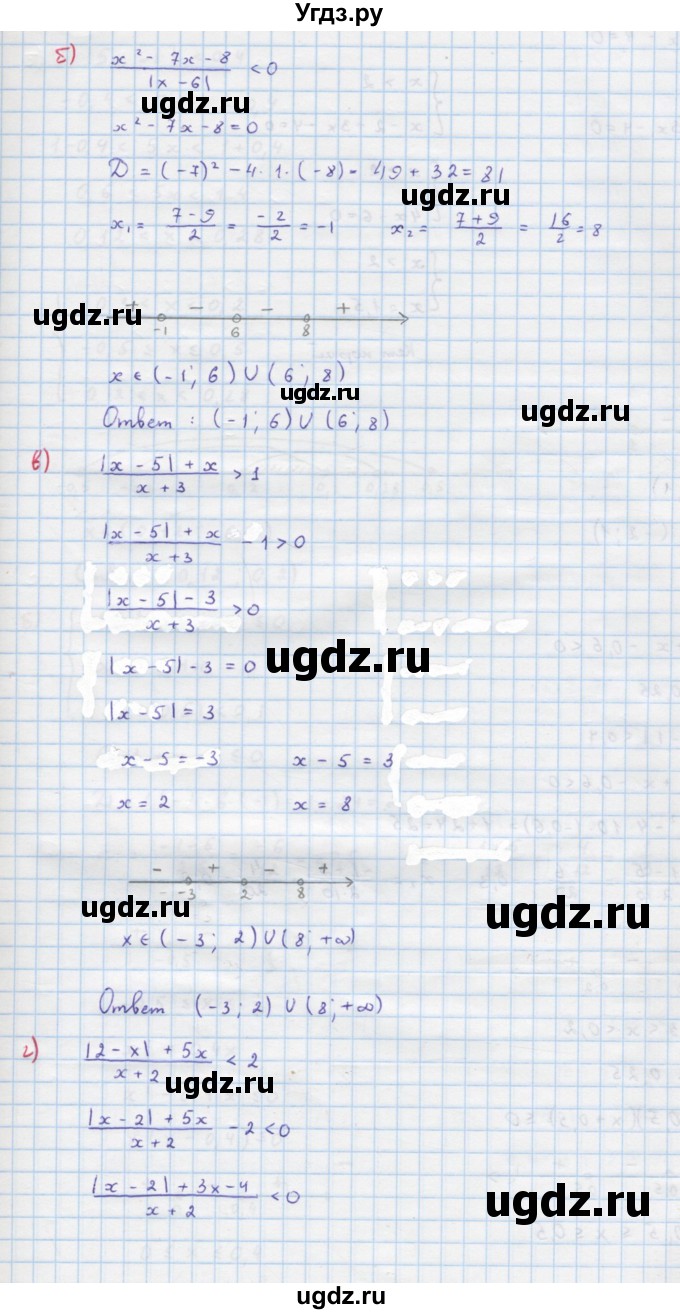 Угдз.ру
б) (x² - 7x - 8)/|x - 6| < 0
ugdz.ru
x² - 7x - 8 = 0
D = (-7)² - 4·1·(-8) = 49 + 32 = 81
ugdz.ru
x₁ = (7 - 9)/2 = -2/2 = -1 x₂ = (7 + 9)/2 = 16/2 = 8
ugdz.ru
+ - - +
-1 6 8
x ∈ (-1; 6) ∪ (6; 8)
ugdz.ru
ugdz.ru
Ответ: (-1; 6) ∪ (6; 8)
в) (|x - 5| + x)/(x + 3) > 1
(|x - 5| + x)/(x + 3) - 1 > 0
(|x - 5| - 3)/(x + 3) > 0
ugdz.ru
|x - 5| - 3 = 0
|x - 5| = 3
x - 5 = -3 x - 5 = 3
x = 2 x = 8
- + - +
-3 2 8
ugdz.ru
ugdz.ru
x ∈ (-3; 2) ∪ (8; +∞)
Ответ (-3; 2) ∪ (8; +∞)
г) (|2 - x| + 5x)/(x + 2) < 2
ugdz.ru
(|x - 2| + 5x)/(x + 2) - 2 < 0
(|x - 2| + 3x - 4)/(x + 2) < 0
ugdz.ru
ugdz.ru